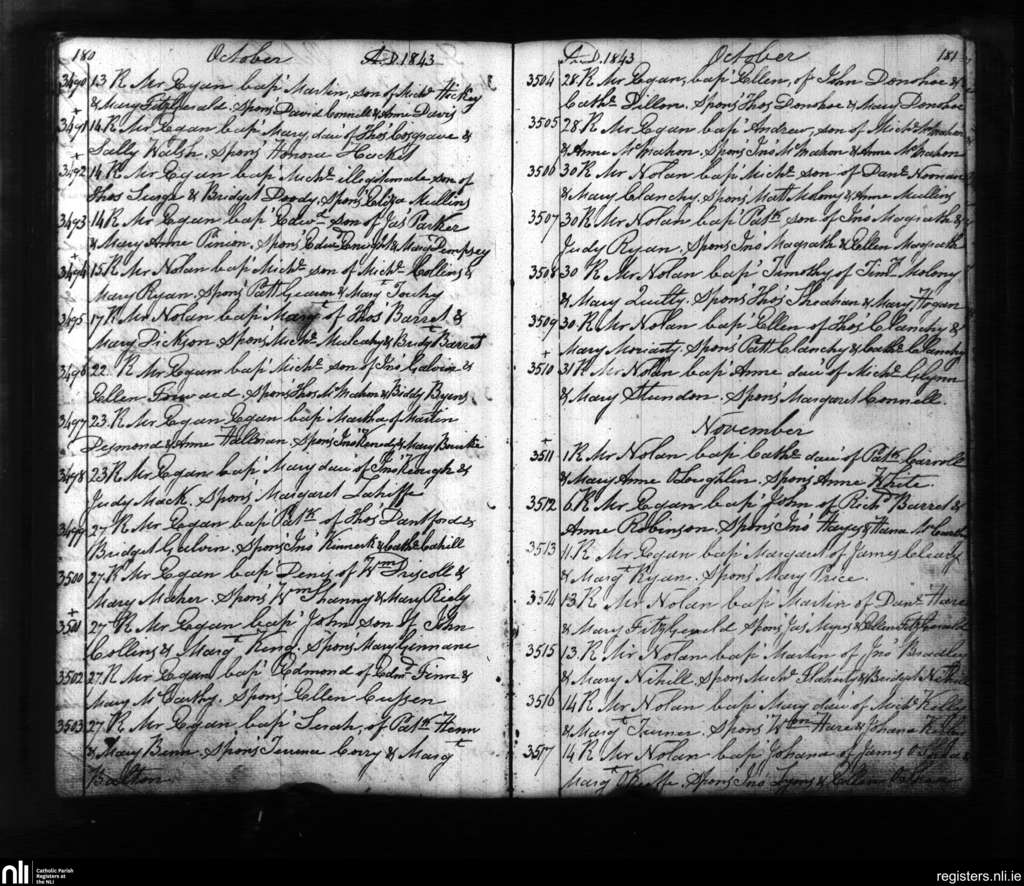 180 October A.D. 1843
3490 13 R Mr Egan bap' Martin, son of Mich.l Hickey
& Mary Fitzgerald. Spon's David Connell & Anne Davis
+
3491 14 R Mr Egan bap' Mary dau' of Tho's Cosgrave &
Sally Walsh. Spon's Honora Hackit
+
3492 14 R Mr Egan bap' Mich.l illegitimate son of
Tho's & Bridget Doody. Spon's Eliza Mullins
3493 14 R Mr Egan bap' Edw.d son of Ja's Parker
& Mary Anne Pinion. Spon's Edw.d Enright & Maria Dempsey
+
3494 15 R Mr Nolan bap' Mich.l son of Mich.l Collins &
Mary Ryan. Spon's Patt & Marg.t Touhy
3495 17 R Mr Nolan bap' Mary of Tho's Barret &
Mary Dickson. Spon's Mich.l Mulcahy & Bridg.t Barret
+
3496 22 R Mr Egan bap' Mich.l son of Jno' Galvin &
Ellen. Spon's Tho's McMahon & Biddy Byrns
3497 23 R Mr Egan bap' Martha of Martin
Desmond & Anne Halloran. Spon's Jno' & Mary Burke
3498 23 R Mr Egan bap' Mary dau' of Jno' Keough &
Judy Mack. Spon's Margaret Lahiffe
+
3499 27 R Mr Egan bap' Pat.k of Tho's Dantford &
Bridget Galvin. Spon's Jno' & Cath.e Cahill
3500 27 R Mr Egan bap' Denis of W.m Driscoll &
Mary Maher. Spon's W.m Shanny & Mary Riely
+
3501 27 R Mr Egan bap' John son of John
Collins & Marg.t King. Spon's Mary Ginnane
3502 27 R Mr Egan bap' Redmond of Edm.d Finn &
Mary McCarthy. Spon's Ellen Cussen
3503 27 R Mr Egan bap' Sarah, of Pat.k Henn
& Mary Benn. Spon's Terence Corry & Marg.t
Bolton
A.D. 1843 October 181
3504 28 R Mr Egan, bap' Ellen, of John Donohoe &
Cath.e Dillon. Spon's Tho's Donohoe & Mary Donohoe
3505 28 R Mr Egan bap' Andrew, son of Mich.l McMahon
& Anne McMahon. Spon's Jno' McMahon & Anne McMahon
3506 30 R Mr Nolan bap' Mich.l son of Dan.l Noonan
& Mary Clanchy. Spon's Matt Molony & Anne Mullins
3507 30 R Mr Nolan bap' Pat.k son of Jno' Magrath &
Judy Ryan. Spon's Jno' Magrath & Ellen Magrath
3508 30 R Mr Nolan bap' Timothy of Tim.y Molony
& Mary Quilty. Spon's Tho's Sheahan & Mary Hogan
3509 30 R Mr Nolan bap' Ellen of Tho's Clanchy &
Mary Moriarty. Spon's Patt Clanchy & Cath.e Clanchy
+
3510 31 R Mr Nolan bap' Anne dau' of Mich.l Glynn
& Mary. Spon's Margaret Connell.
November
+
3511 1 R Mr Nolan bap' Cath.e dau' of Pat.k Carroll
& Mary Anne O'Loughlin. Spon's Anne White
3512 6 R Mr Egan bap' John of Rich.d Barret &
Anne Robinson. Spon's Jno' Hayes & Hana
3513 11 R Mr Egan bap' Margaret of James Cleary
& Marg.t Ryan. Spon's Mary Price
3514 13 R Mr Nolan bap' Martin of Dan.l Hare
& Mary Fitzgerald Spon's Ja's Myns & Ellen Fitzgerald
3515 13 R Mr Nolan bap' Martin of Jno' Bradley
& Mary Nihill. Spon's Mich.l Flaherty & Bridget Nihill
3516 14 R Mr Nolan bap' Mary dau' of Mich.l Kelly
& Marg.t Turner. Spon's W.m Hare & Johana Kelly
3517 14 R Mr Nolan bap' Johana of James
Marg.t O'Keeffe. Spon's Jno' Lyons & Ellen
nli Catholic Parish
Registers at
the NLI
registers.nli.ie